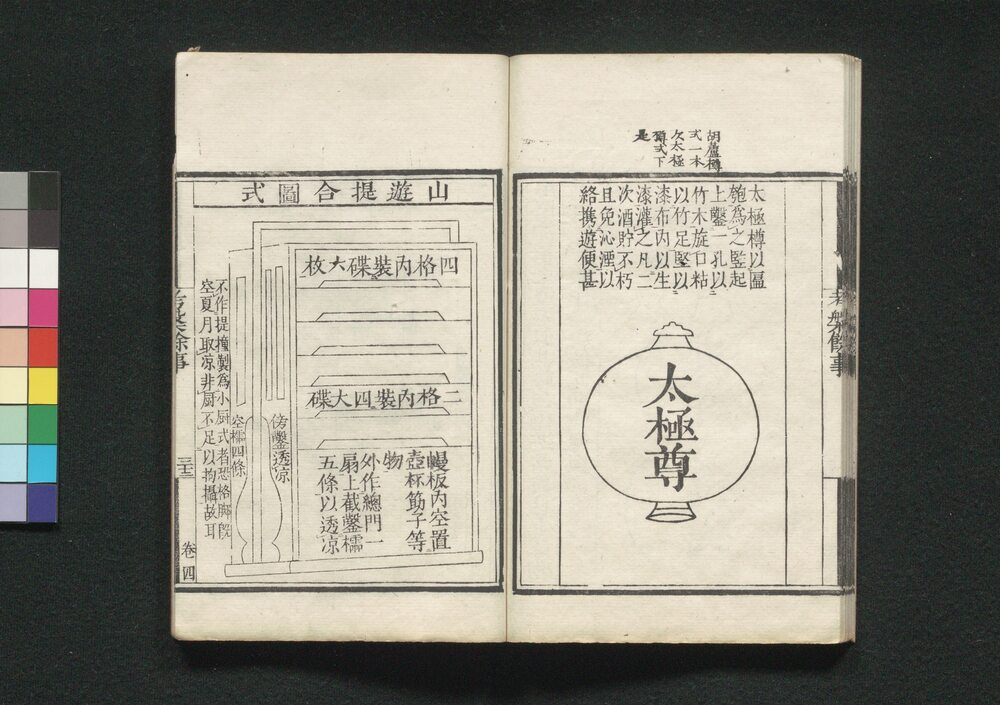 胡蘆樽
式一本
攵太極
樽式下
是
太極樽以匾
匏為之竪起
上鑿一孔以
竹木旋口粘
以竹足堅以
漆布內以生
漆灌之凡二
次酒貯不朽
且免沁湮以
絡携遊便甚
太極尊
考槃餘事
山遊提合圖式
四格內裝碟六枚
二格內裝四大碟
幔板內空置
壺杯筯子等
物
外作總門一
扇上截鑿檽
五條以透凉
傍鑿透凉
空檽四條
不作提撞製為小厨式者恐格脚既
空夏月取凉非厨不足以拘攝故耳
考槃餘事
三十三
卷四